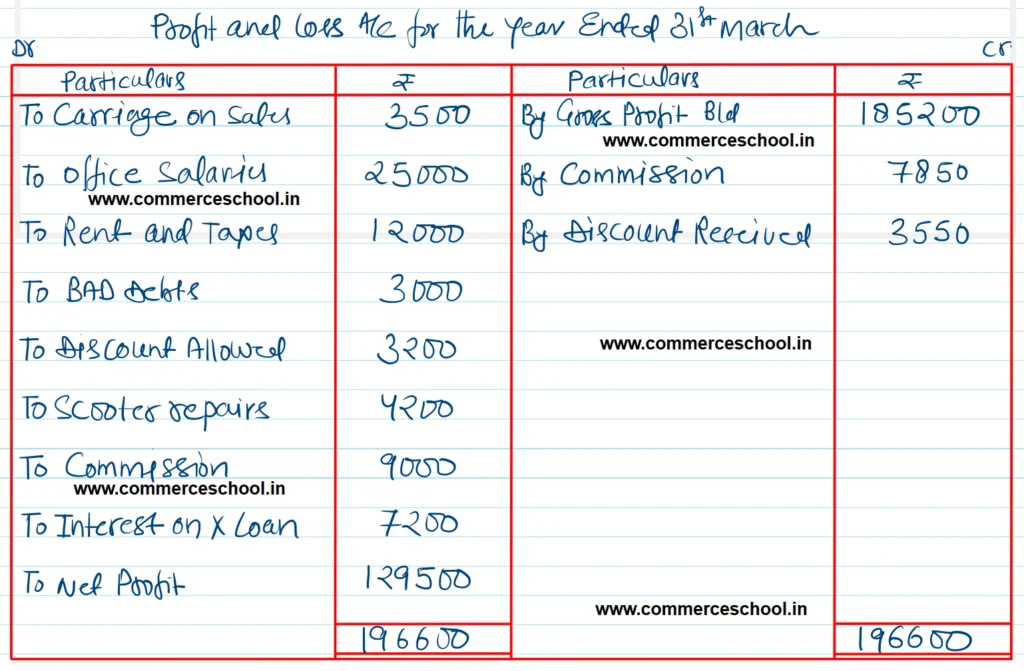 Profit and Loss A/c for the year Ended 31st March
Dr Cr
Particulars ₹ Particulars ₹
To Carriage on Sales 3500 By Gross Profit Bld 185200
www.commerceschool.in
To Office Salaries 25000 By Commission 7850
www.commerceschool.in
To Rent and Taxes 12000 By Discount Received 3550
To BAD Debts 3000
To Discount Allowed 3200 www.commerceschool.in
To Scooter repairs 4200
To Commission 9000
www.commerceschool.in
To Interest on X Loan 7200
To Net Profit 129500
www.commerceschool.in
196600 196600